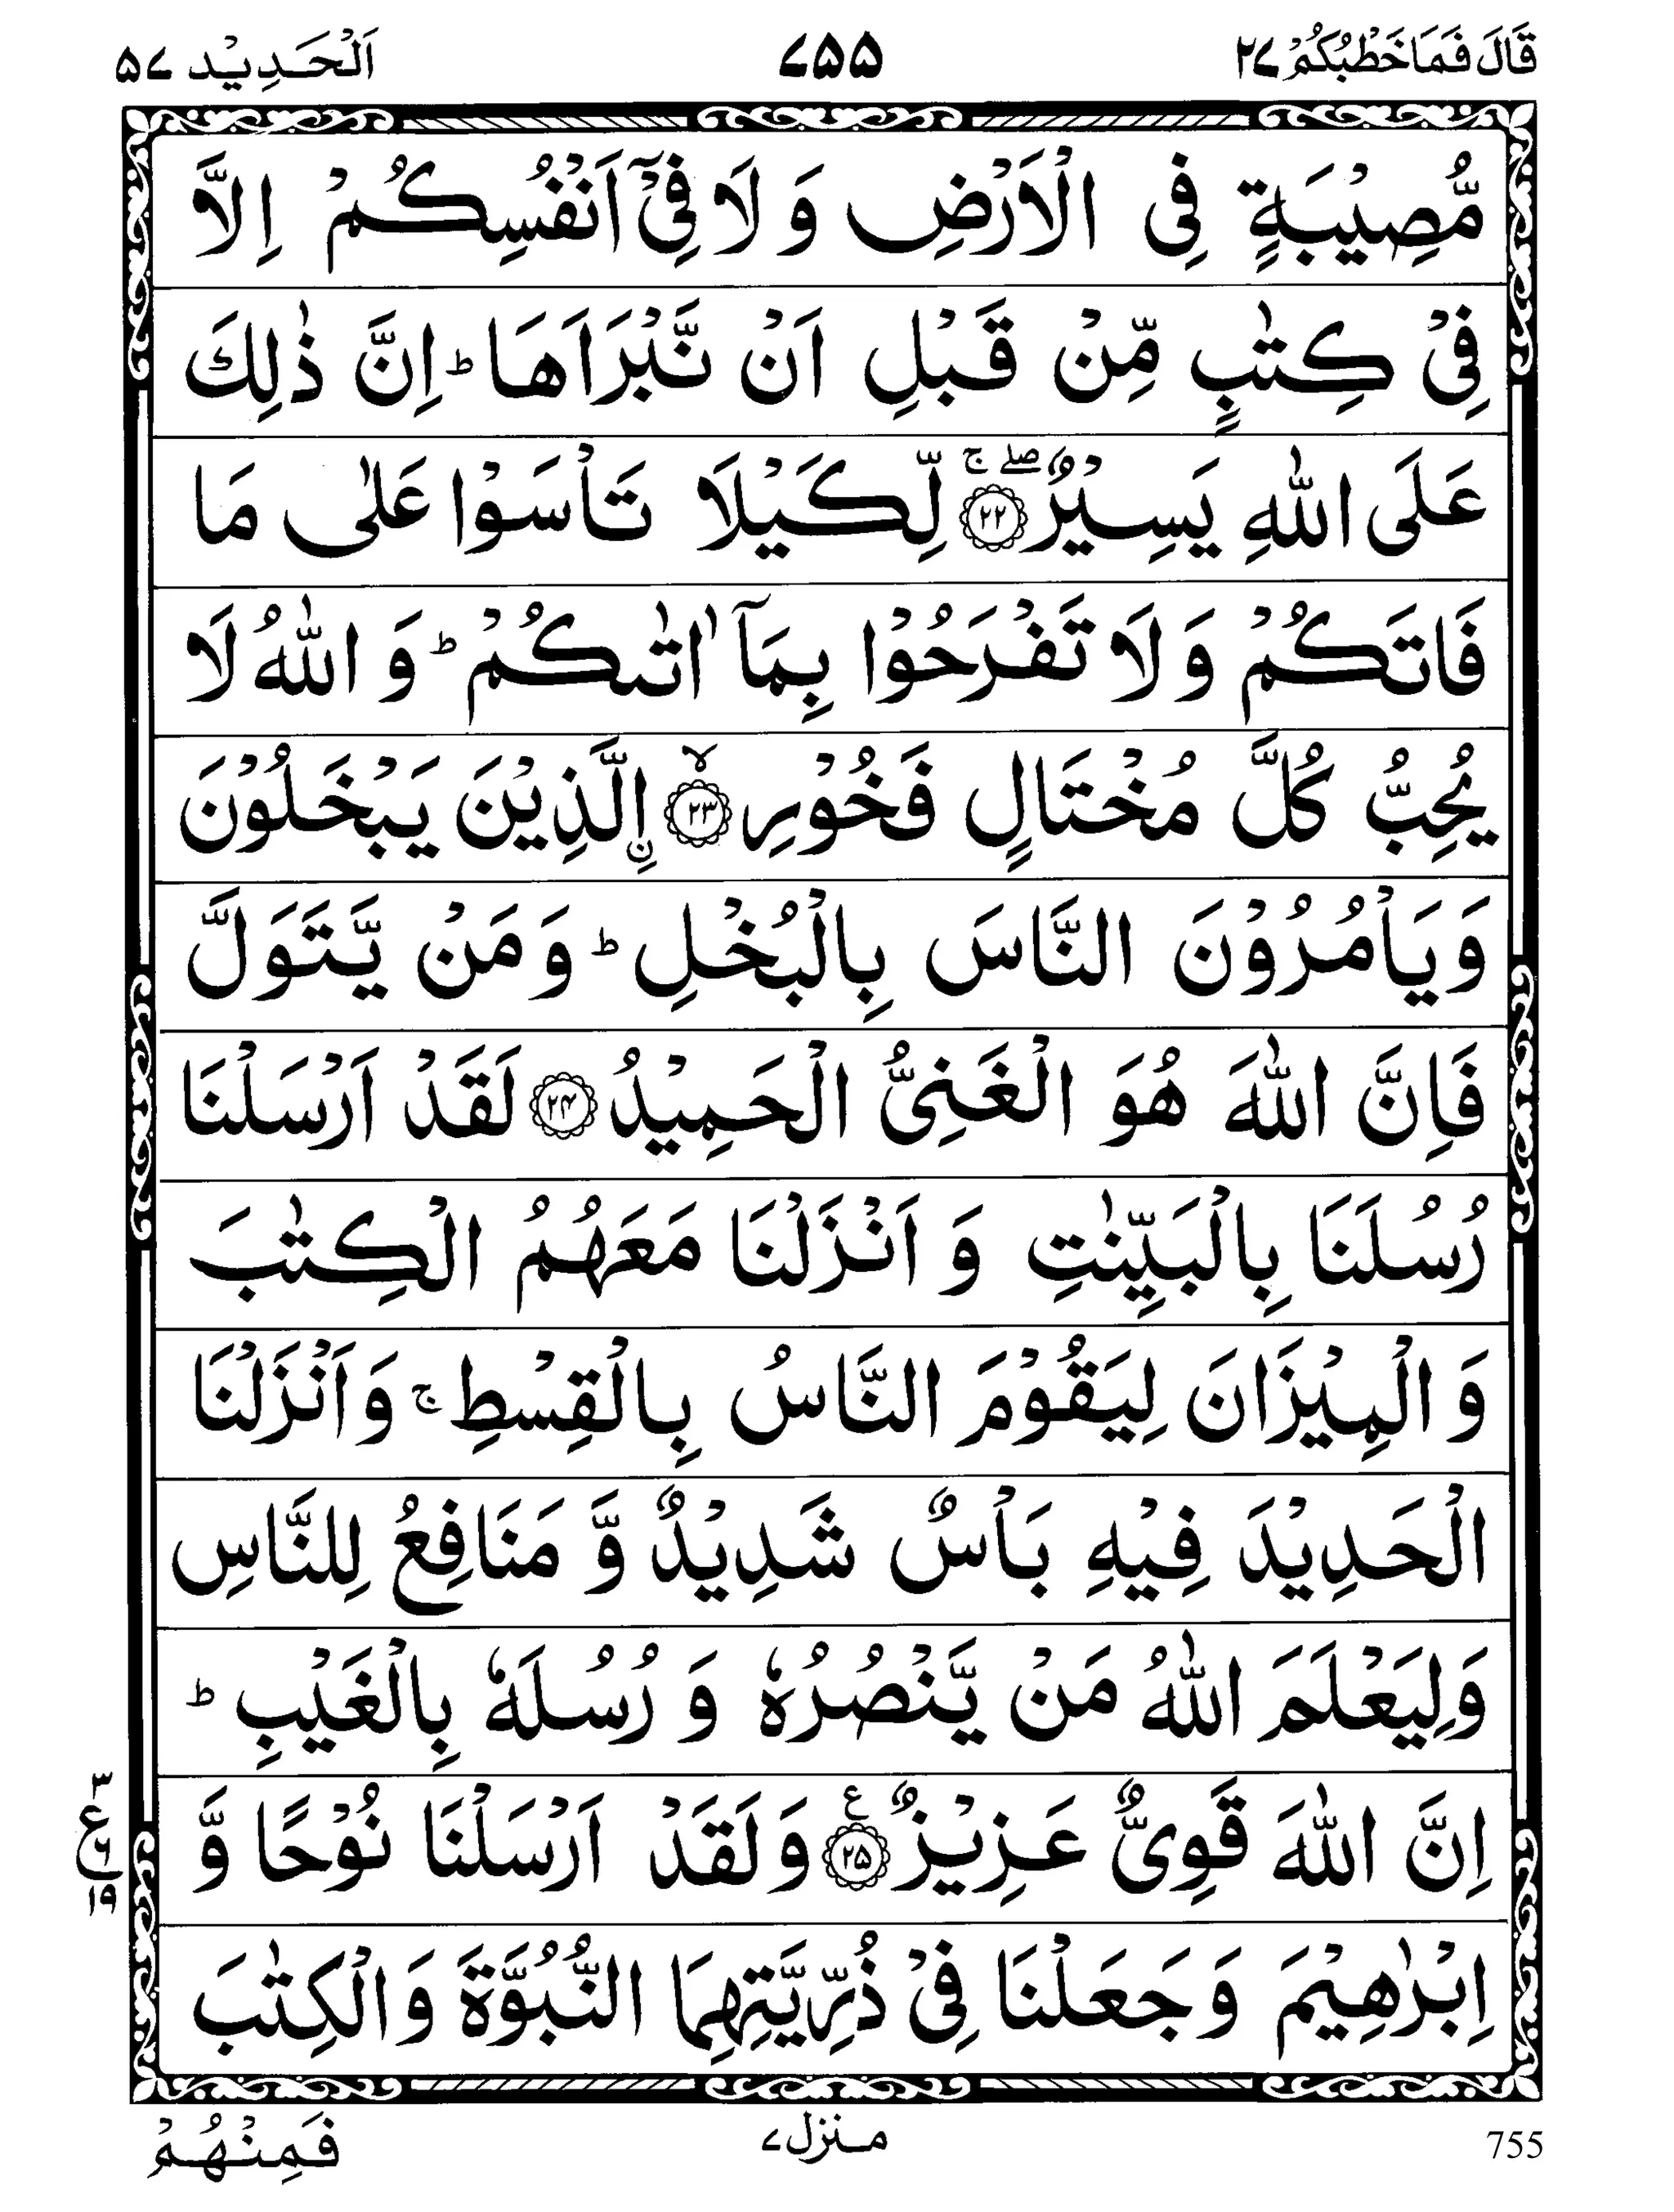 قَالَ فَمَا خَطْبُكُمْ ٢٧ ٧٥٥ اَلْحَدِيْد ٥٧
مُّصِيْبَةٍ فِى الْاَرْضِ وَ لَا فِيْۤ اَنْفُسِكُمْ اِلَّا
فِيْ كِتٰبٍ مِّنْ قَبْلِ اَنْ نَّبْرَاَهَا ؕ اِنَّ ذٰلِكَ
عَلَى اللّٰهِ يَسِيْرٌ ۖۚ ﴿٢٢﴾ لِّكَيْلَا تَاْسَوْا عَلٰى مَا
فَاتَكُمْ وَ لَا تَفْرَحُوْا بِمَاۤ اٰتٰىكُمْ ؕ وَ اللّٰهُ لَا
يُحِبُّ كُلَّ مُخْتَالٍ فَخُوْرِ ۙ ﴿٢٣﴾ اِ۟لَّذِيْنَ يَبْخَلُوْنَ
وَ يَاْمُرُوْنَ النَّاسَ بِالْبُخْلِ ؕ وَ مَنْ يَّتَوَلَّ
فَاِنَّ اللّٰهَ هُوَ الْغَنِىُّ الْحَمِيْدُ ﴿٢٤﴾ لَقَدْ اَرْسَلْنَا
رُسُلَنَا بِالْبَيِّنٰتِ وَ اَنْزَلْنَا مَعَهُمُ الْكِتٰبَ
وَ الْمِيْزَانَ لِيَقُوْمَ النَّاسُ بِالْقِسْطِ ۚ وَ اَنْزَلْنَا
الْحَدِيْدَ فِيْهِ بَاْسٌ شَدِيْدٌ وَّ مَنَافِعُ لِلنَّاسِ
وَ لِيَعْلَمَ اللّٰهُ مَنْ يَّنْصُرُهٗ وَ رُسُلَهٗ بِالْغَيْبِ ؕ
اِنَّ اللّٰهَ قَوِىٌّ عَزِيْزٌ ﴿٢٥﴾ ع وَ لَقَدْ اَرْسَلْنَا نُوْحًا وَّ
٣
ع ٦
١٩
اِبْرٰهِيْمَ وَ جَعَلْنَا فِيْ ذُرِّيَّتِهِمَا النُّبُوَّةَ وَ الْكِتٰبَ
فَمِنْهُمْ
منزل ٧
755